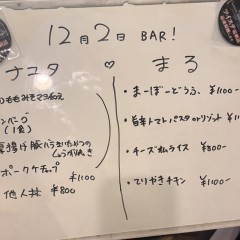 12月2日 BAR!
ナユタ ♡ まる
ももみそマヨ
ンバーグ
(1食)
厚揚げ豚バラ
しょうが焼き
ポークケチャップ
¥1100
他人丼 ¥800
・まーぼーどうふ、¥1100-
・旨辛トマトパスタorリゾット ¥1100-
・チーズ ライス ¥800-
・てりやきチキン ¥1100-